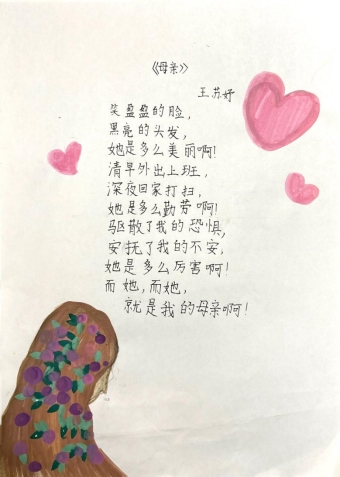 《母亲》
王苏妤
笑盈盈的脸，
黑亮的头发，
她是多么美丽啊！
清早外出上班，
深夜回家打扫，
她是多么勤劳啊！
驱散了我的恐惧，
安抚了我的不安，
她是多么厉害啊！
而她，而她，
就是我的母亲啊！